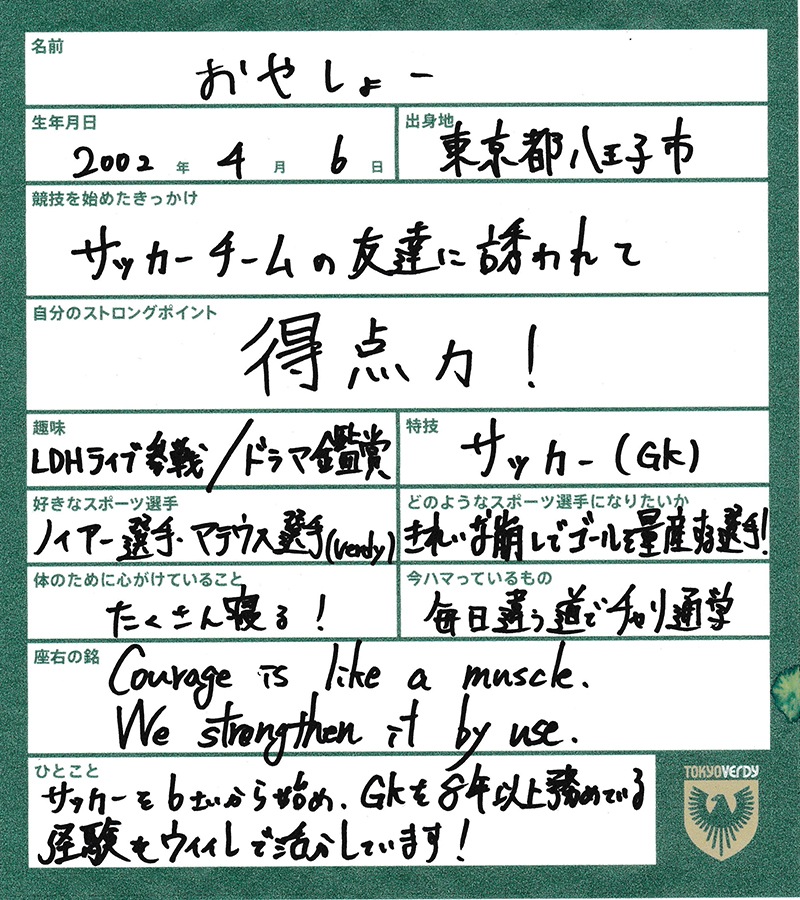 名前
おやしょー
生年月日 出身地
2002年 4月 6日 東京都八王子市
競技を始めたきっかけ
サッカーチームの友達に誘われて
自分のストロングポイント
得点力!
趣味 特技
LDHライブ参戦/ドラマ鑑賞 サッカー(GK)
好きなスポーツ選手 どのようなスポーツ選手になりたいか
ノイアー選手・マテウス選手(Verdy) きれいな崩しでゴールを量産する選手!
体のために心がけていること 今ハマっているもの
たくさん寝る! 毎日違う道でチャリ通学
座右の銘
Courage is like a muscle.
We strengthen it by use.
ひとこと
サッカーを6才から始め、GKを8年以上務めている
経験をウイイレで活かしています!
TOKYO VERDY